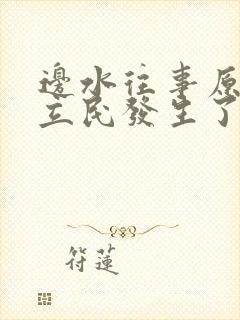 邊水往事原
立民發生了
符蓮